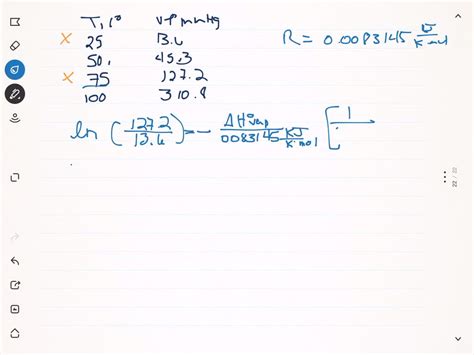 T, C° vp mmHg
x 25 13.6
50. 45.3
x 75 127.2
100 310.8
R = 0.0083145 kJ / K mol
ln ( 127.2 / 13.6 ) = - ΔH°vap / 0083145 kJ / K·mol [ 1
22 / 22